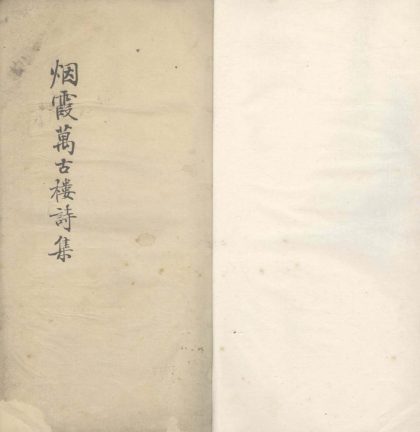 烟霞萬古樓詩集